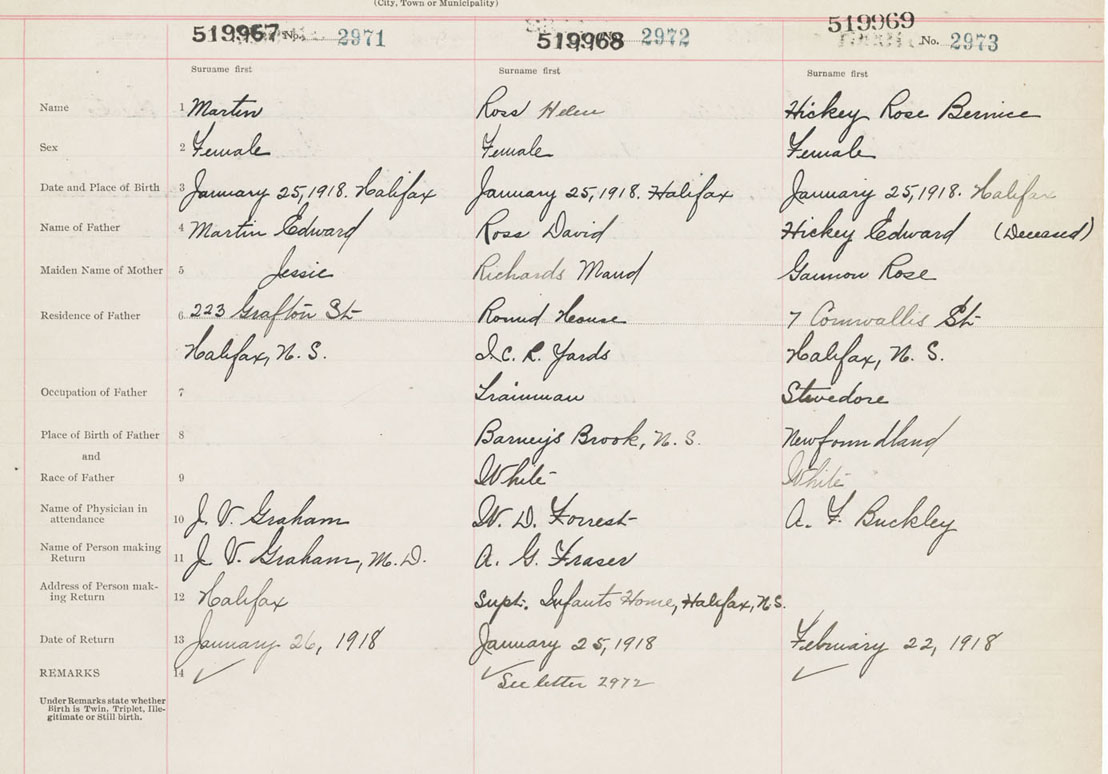 (City, Town or Municipality)
519967 No. 2971 519968 No. 2972 519969 No. 2973
Surname first Surname first Surname first
Name 1 Martin Ross Helen Hickey Rose Bernice
Sex 2 Female Female Female
Date and Place of Birth 3 January 25, 1918. Halifax January 25, 1918. Halifax January 25, 1918. Halifax
Name of Father 4 Martin Edward Ross David Hickey Edward (Deceased)
Maiden Name of Mother 5 Jessie Richards Maud Gannon Rose
Residence of Father 6 223 Grafton St Round House 7 Cornwallis St
Halifax, N. S. I. C. R. Yards Halifax, N. S.
Occupation of Father 7 Trainman Stevedore
Place of Birth of Father 8 Barney's Brook, N. S. Newfoundland
and
Race of Father 9 White White
Name of Physician in
attendance 10 J. V. Graham W. D. Forrest A. F. Buckley
Name of Person making
Return 11 J. V. Graham, M. D. A. G. Fraser
Address of Person mak-
ing Return 12 Halifax Supt. Infants Home, Halifax, N.S.
Date of Return 13 January 26, 1918 January 25, 1918 February 22, 1918
REMARKS 14 ✓ ✓ See letter 2972 ✓
Under Remarks state whether
Birth is Twin, Triplet, Ille-
gitimate or Still birth.